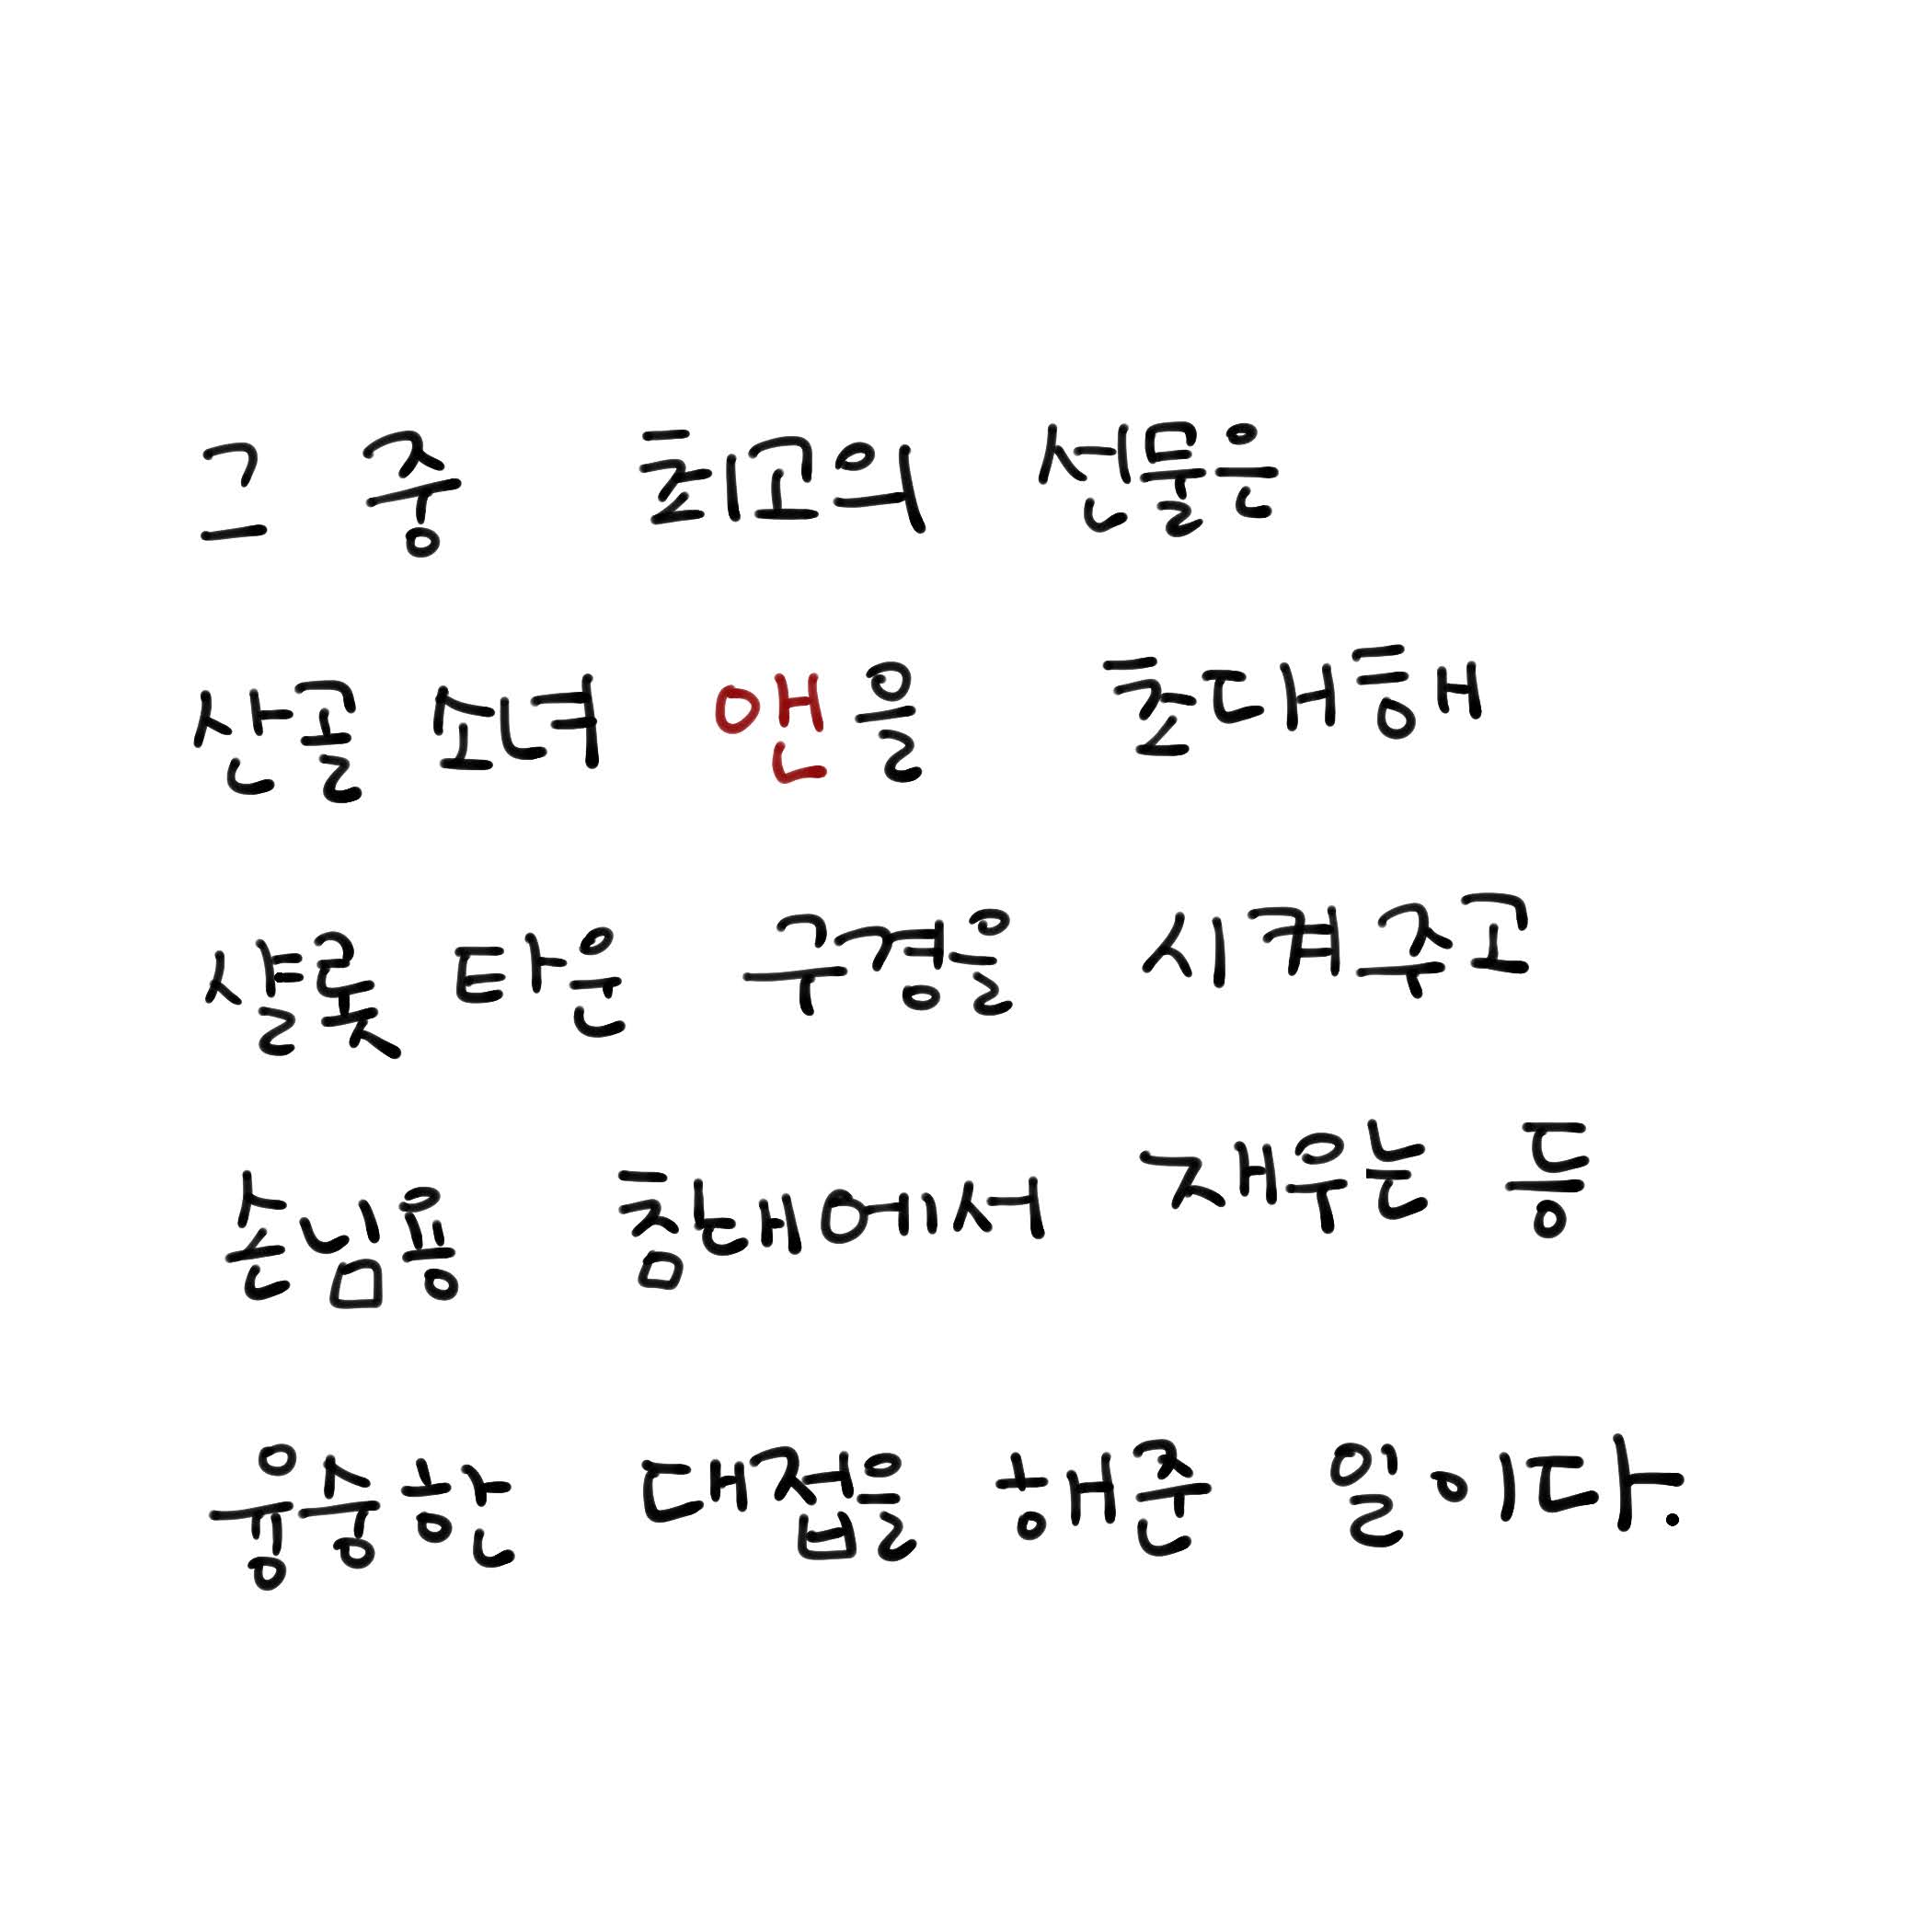 그 중 최고의 선물은
산골 소녀 앤을 초대해
샬롯 타운 구경을 시켜주고
손님용 침대에서 재우는 등
융숭한 대접을 해준 일이다.